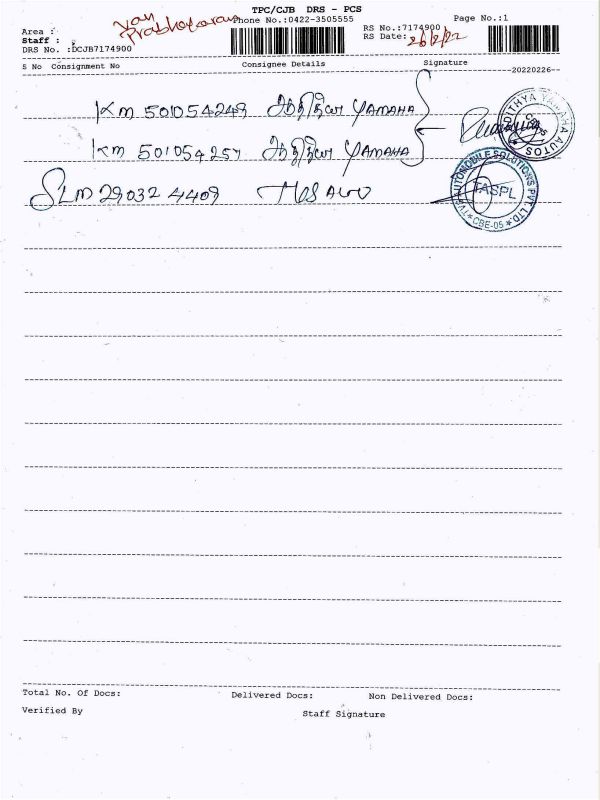 TPC/CJB DRS - PCS
Van
Prabhakaran
Phone No.:0422-3505555
Page No.:1
Area :
Staff :
RS No.:7174900
DRS No. :DCJB7174900
RS Date: 26/2/22
S No Consignment No Consignee Details Signature
20220226
KM 501054249 ஆதித்யா YAMAHA
KM 501054257 ஆதித்யா YAMAHA
SLM 29032 4409
ADITHYA YAMAHA AUTOS
TVS AUTOMOBILE SOLUTIONS PVT. LTD.
TASPL
CBE-05
Total No. Of Docs: Delivered Docs: Non Delivered Docs:
Verified By Staff Signature